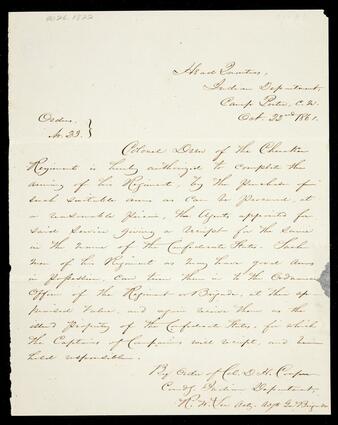 Head Quarters,
Indian Department,
Camp Porter, C. N.
Oct. 22nd 1861.
Orders.
No. 33.
Colonel Drew of the Cherokee
Regiment is hereby authorized to complete the
arming of his Regiment, by the purchase of
such suitable arms as can be procured, at
a reasonable price, the Agents appointed for
said Service giving a Receipt for the same
in the name of the Confederate States. Such
men of his Regiment as may have good Arms
in possession, can turn them in to the Ordnance
Officer of the Regiment or Brigade, at their ap-
praised Value, and again receive them as the
property of the Confederate States, for which
the Captains of Companies will receipt, and
held responsible.
By Order of Col. D. H. Cooper
Comdg Indian Department,
Actg. Adjt. Genl